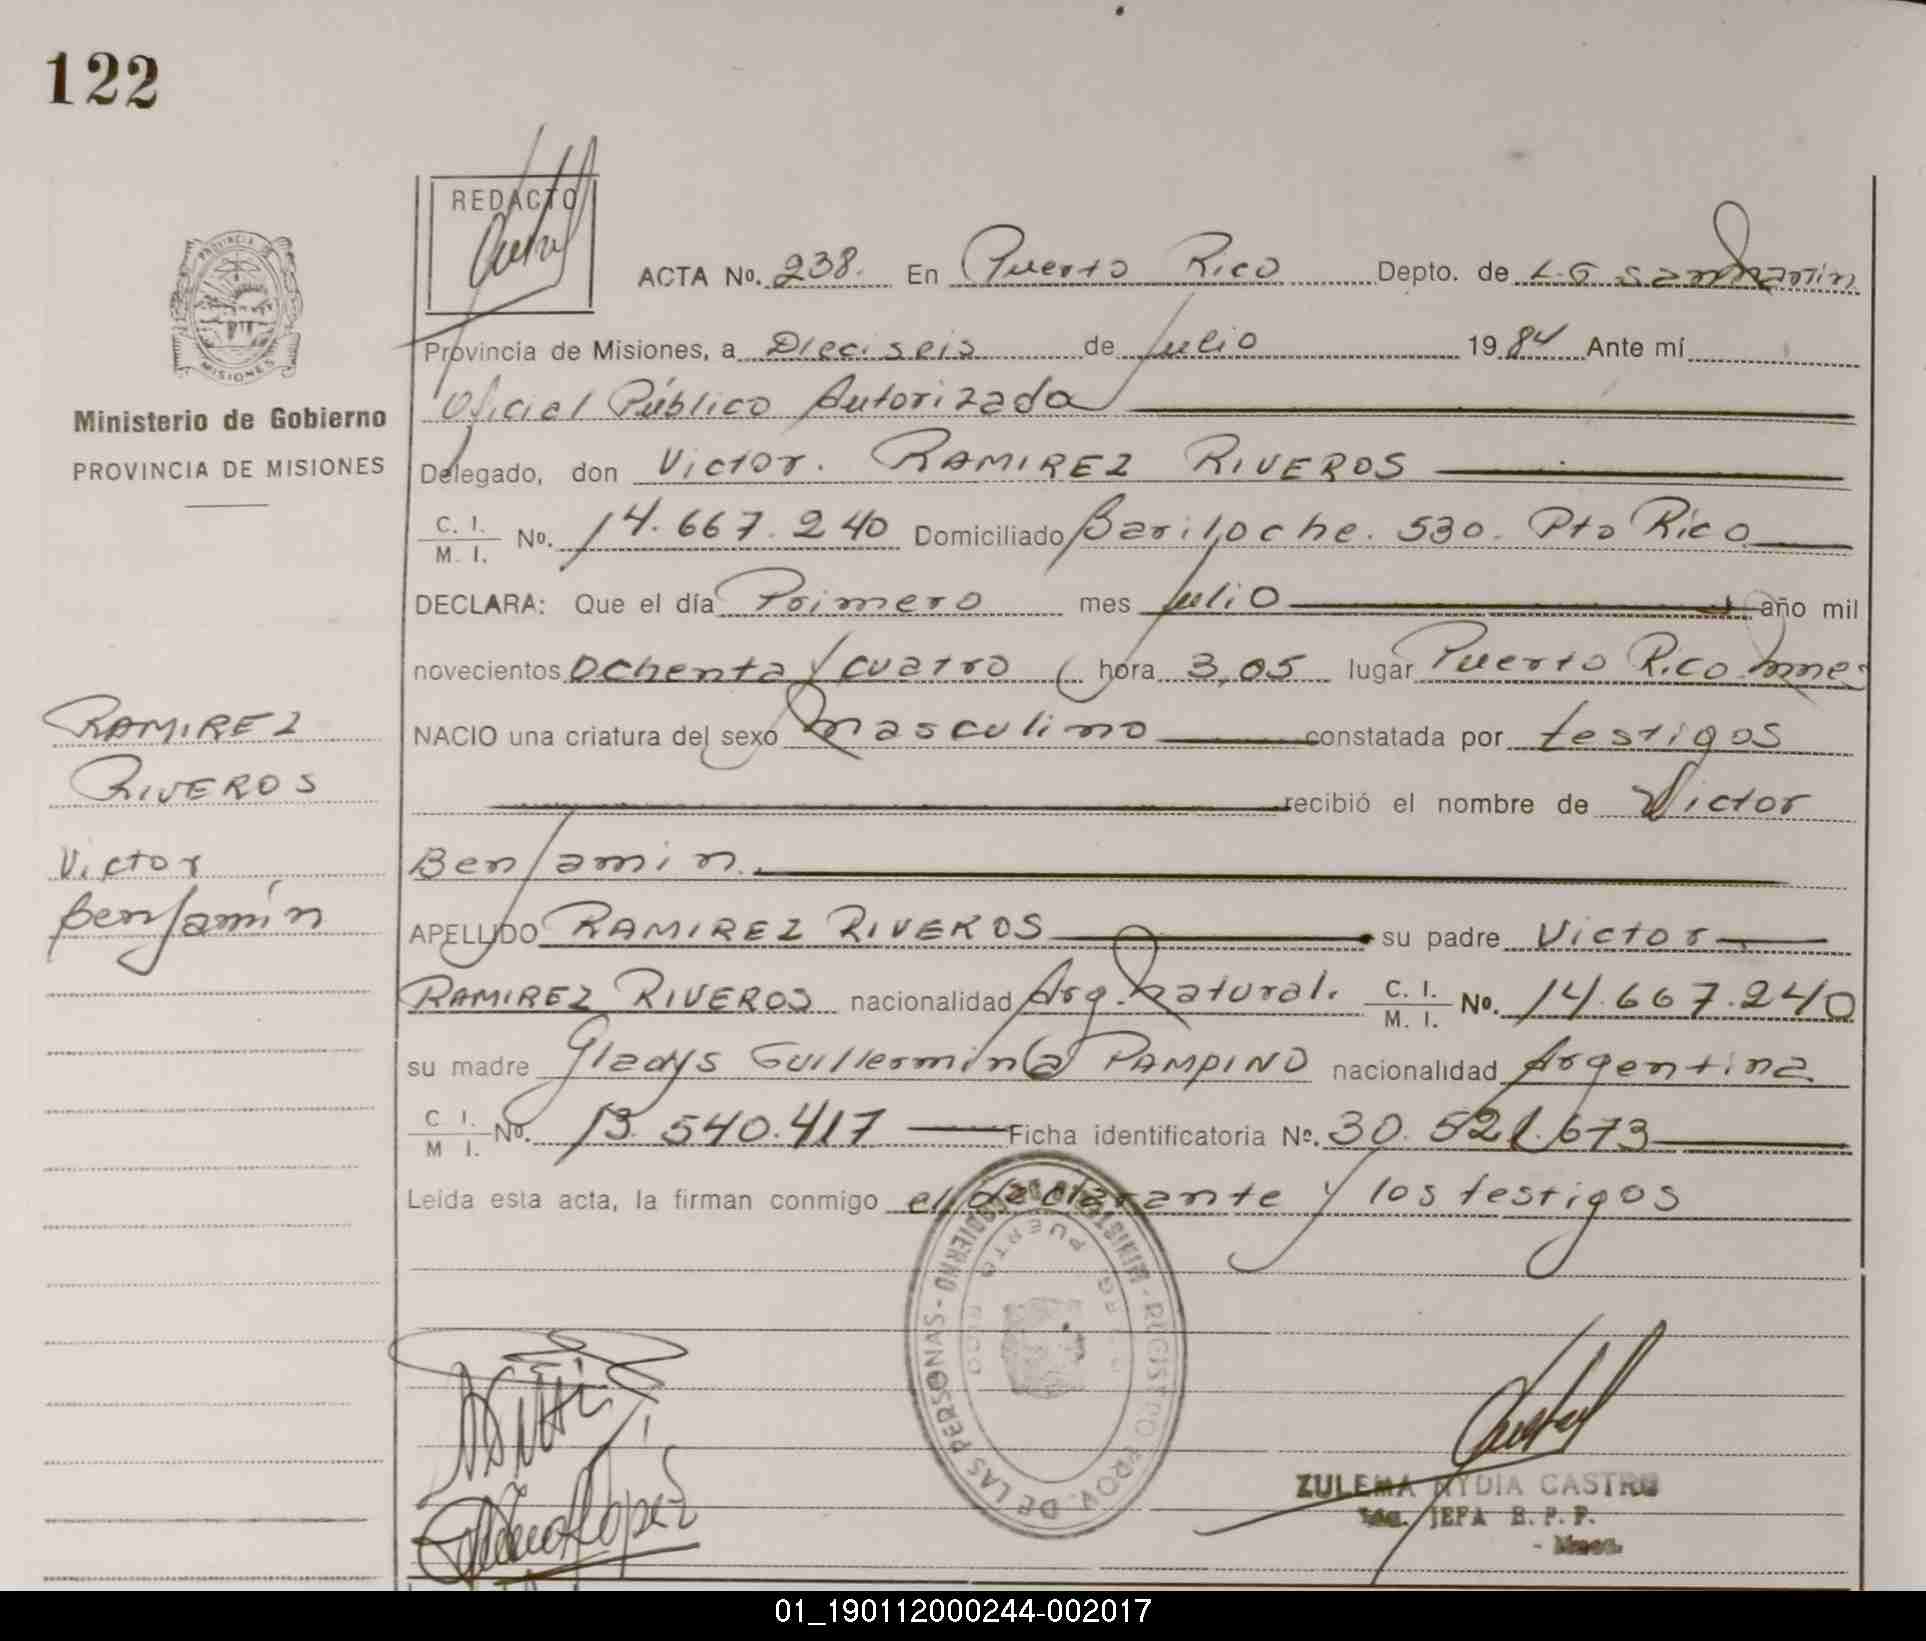 122
REDACTO
ACTA No. 238. En Puerto Rico Depto. de L.G San Martín
Provincia de Misiones, a Dieciseis de Julio 1984 Ante mí
Oficial Público Autorizada
Delegado, don Victor. RAMIREZ RIVEROS
C. I. M. I. No. 14.667.240 Domiciliado Bariloche. 530. Pto Rico
DECLARA: Que el día Primero mes Julio año mil
novecientos Ochenta y cuatro hora 3,05 lugar Puerto Rico Mnes
NACIO una criatura del sexo Masculino constatada por testigos
recibió el nombre de Victor
Benjamin.
APELLIDO RAMIREZ RIVEROS su padre Victor
RAMIREZ RIVEROS nacionalidad Arg. Natural. C. I. M. I. No. 14.667.240
su madre Gladys Guillermin(a) PAMPINO nacionalidad Argentina
C I. M I. No. 13.540.417 Ficha identificatoria No. 30.521.673
Leída esta acta, la firman conmigo el declarante y los testigos
PROVINCIA DE
MISIONES
Ministerio de Gobierno
PROVINCIA DE MISIONES
RAMIREZ
RIVEROS
Victor
Benjamín
MINISTERIO DE GOBIERNO - REGISTRO PROV. DE LAS PERSONAS -
PUERTO RICO
López
ZULEMA NYDIA CASTRO
JEFA B. P. F.
01_190112000244-002017